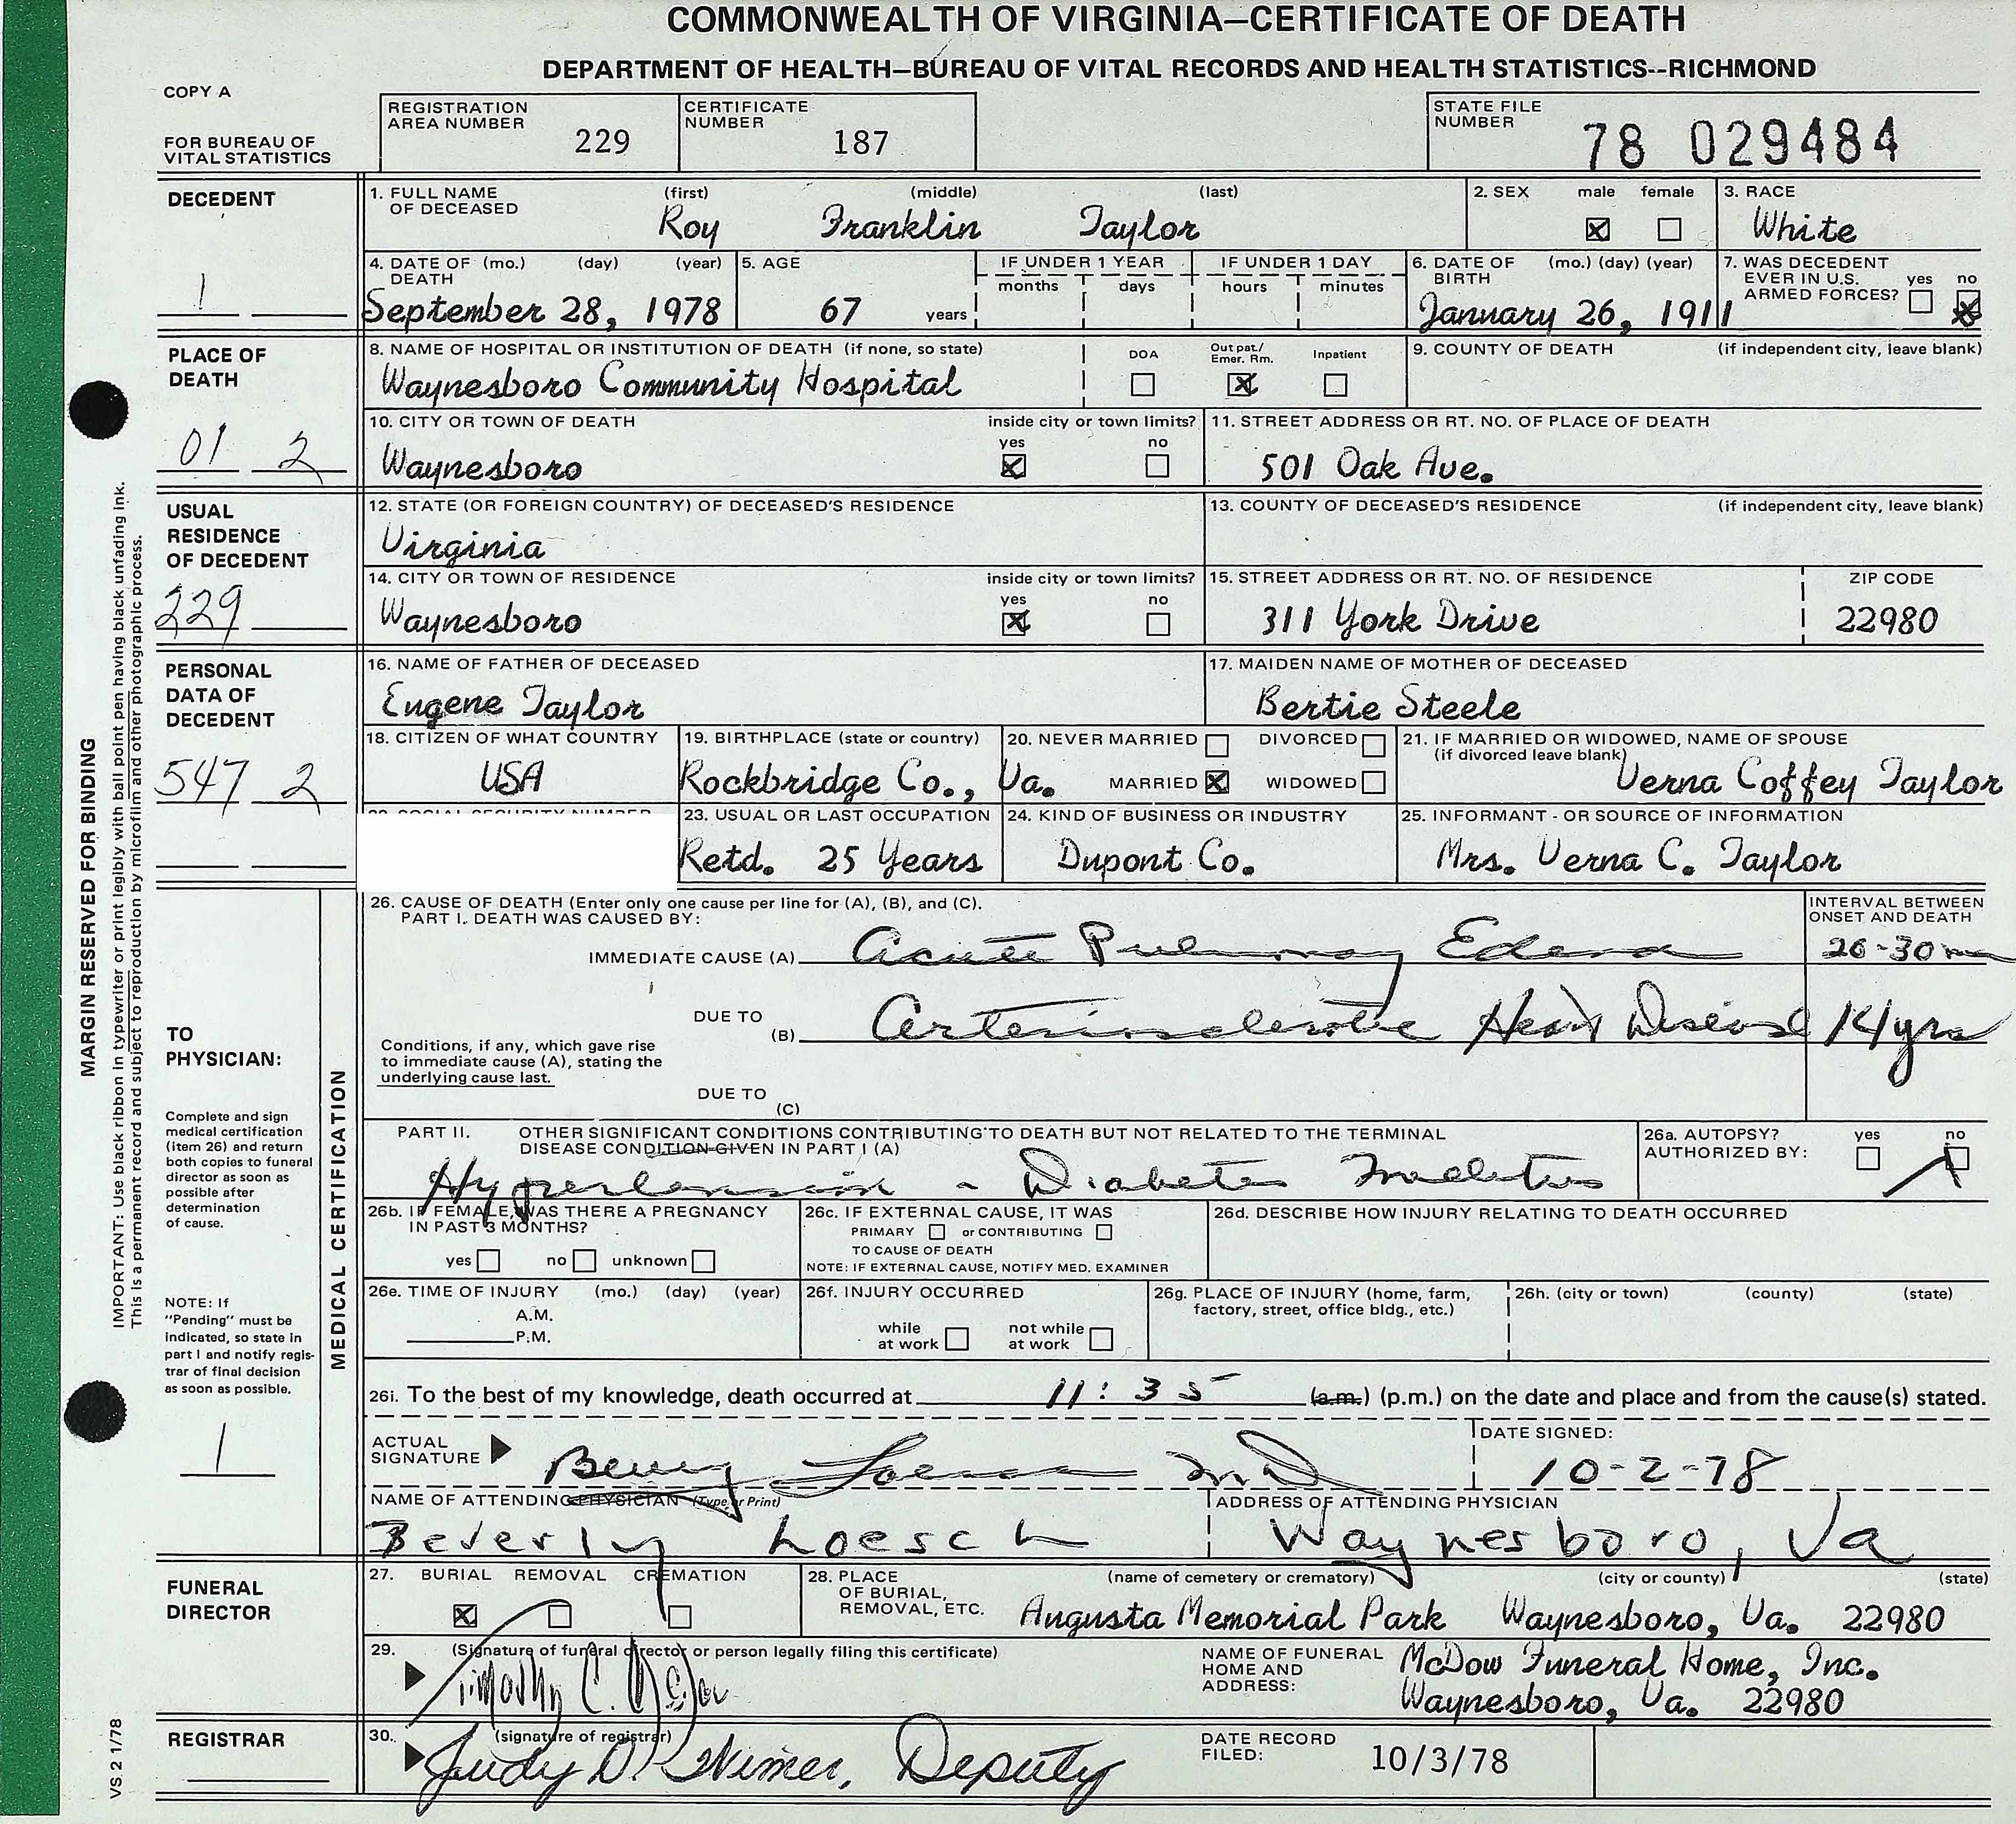 COMMONWEALTH OF VIRGINIA—CERTIFICATE OF DEATH
DEPARTMENT OF HEALTH—BUREAU OF VITAL RECORDS AND HEALTH STATISTICS--RICHMOND
COPY A
FOR BUREAU OF VITAL STATISTICS
REGISTRATION AREA NUMBER 229
CERTIFICATE NUMBER 187
STATE FILE NUMBER 78 029484
DECEDENT
1
1. FULL NAME OF DECEASED (first) (middle) (last)
Roy Franklin Taylor
2. SEX male ☒ female ☐
3. RACE
White
4. DATE OF DEATH (mo.) (day) (year)
September 28, 1978
5. AGE
67 years
IF UNDER 1 YEAR months days
IF UNDER 1 DAY hours minutes
6. DATE OF BIRTH (mo.) (day) (year)
January 26, 1911
7. WAS DECEDENT EVER IN U.S. ARMED FORCES? yes ☐ no ☒
PLACE OF DEATH
01 2
8. NAME OF HOSPITAL OR INSTITUTION OF DEATH (if none, so state)
Waynesboro Community Hospital
DOA ☐ Out pat./ Emer. Rm. ☒ Inpatient ☐
9. COUNTY OF DEATH (if independent city, leave blank)
10. CITY OR TOWN OF DEATH
Waynesboro
inside city or town limits? yes ☒ no ☐
11. STREET ADDRESS OR RT. NO. OF PLACE OF DEATH
501 Oak Ave.
USUAL RESIDENCE OF DECEDENT
229
12. STATE (OR FOREIGN COUNTRY) OF DECEASED'S RESIDENCE
Virginia
13. COUNTY OF DECEASED'S RESIDENCE (if independent city, leave blank)
14. CITY OR TOWN OF RESIDENCE
Waynesboro
inside city or town limits? yes ☒ no ☐
15. STREET ADDRESS OR RT. NO. OF RESIDENCE
311 York Drive
ZIP CODE
22980
PERSONAL DATA OF DECEDENT
547 2
16. NAME OF FATHER OF DECEASED
Eugene Taylor
17. MAIDEN NAME OF MOTHER OF DECEASED
Bertie Steele
18. CITIZEN OF WHAT COUNTRY
USA
19. BIRTHPLACE (state or country)
Rockbridge Co., Va.
20. NEVER MARRIED ☐ DIVORCED ☐
MARRIED ☒ WIDOWED ☐
21. IF MARRIED OR WIDOWED, NAME OF SPOUSE
(if divorced leave blank)
Verna Coffey Taylor
23. USUAL OR LAST OCCUPATION
Retd. 25 Years
24. KIND OF BUSINESS OR INDUSTRY
Dupont Co.
25. INFORMANT - OR SOURCE OF INFORMATION
Mrs. Verna C. Taylor
MARGIN RESERVED FOR BINDING
IMPORTANT: Use black ribbon in typewriter or print legibly with ball point pen having black unfading ink.
This is a permanent record and subject to reproduction by microfilm and other photographic process.
TO PHYSICIAN:
Complete and sign medical certification (item 26) and return both copies to funeral director as soon as possible after determination of cause.
NOTE: If "Pending" must be indicated, so state in part I and notify registrar of final decision as soon as possible.
1
MEDICAL CERTIFICATION
26. CAUSE OF DEATH (Enter only one cause per line for (A), (B), and (C).
PART I. DEATH WAS CAUSED BY:
INTERVAL BETWEEN ONSET AND DEATH
IMMEDIATE CAUSE (A) Acute Pulmonary Edema 20-30 min
DUE TO (B) Arteriosclerotic Heart Disease 14 yrs
Conditions, if any, which gave rise to immediate cause (A), stating the underlying cause last.
DUE TO (C)
PART II. OTHER SIGNIFICANT CONDITIONS CONTRIBUTING TO DEATH BUT NOT RELATED TO THE TERMINAL DISEASE CONDITION GIVEN IN PART I (A)
Hypertension - Diabetes Mellitus
26a. AUTOPSY? AUTHORIZED BY: yes ☐ no ☒
26b. IF FEMALE, WAS THERE A PREGNANCY IN PAST 3 MONTHS?
yes ☐ no ☐ unknown ☐
26c. IF EXTERNAL CAUSE, IT WAS
PRIMARY ☐ or CONTRIBUTING ☐
TO CAUSE OF DEATH
NOTE: IF EXTERNAL CAUSE, NOTIFY MED. EXAMINER
26d. DESCRIBE HOW INJURY RELATING TO DEATH OCCURRED
26e. TIME OF INJURY (mo.) (day) (year)
A.M.
P.M.
26f. INJURY OCCURRED
while at work ☐ not while at work ☐
26g. PLACE OF INJURY (home, farm, factory, street, office bldg., etc.)
26h. (city or town) (county) (state)
26i. To the best of my knowledge, death occurred at 11:35 (a.m.) (p.m.) on the date and place and from the cause(s) stated.
ACTUAL SIGNATURE Beverly Loesch MD
DATE SIGNED:
10-2-78
NAME OF ATTENDING PHYSICIAN (Type or Print)
Beverly Loesch
ADDRESS OF ATTENDING PHYSICIAN
Waynesboro, Va
FUNERAL DIRECTOR
27. BURIAL ☒ REMOVAL ☐ CREMATION ☐
28. PLACE OF BURIAL, REMOVAL, ETC. (name of cemetery or crematory) (city or county) (state)
Augusta Memorial Park Waynesboro, Va. 22980
29. (Signature of funeral director or person legally filing this certificate)
Timothy C.
NAME OF FUNERAL HOME AND ADDRESS:
McDow Funeral Home, Inc.
Waynesboro, Va. 22980
REGISTRAR
30. (signature of registrar)
Judy D. Deputy
DATE RECORD FILED: 10/3/78
VS. 2 1/78